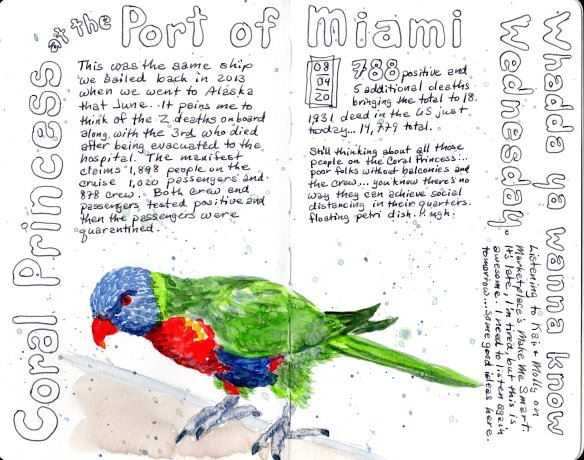 Coral Princess at the Port of Miami
This was the same ship
we sailed back in 2013
when we went to Alaska
that June. It pains me to
think of the 2 deaths onboard
along with the 3rd who died
after being evacuated to the
hospital. The manifest
claims 1,898 people on the
cruise 1,020 passengers and
878 crew. Both crew and
passengers tested positive and
then the passengers were
quarantined.
08
04
20
788 positive and
5 additional deaths
bringing the total to 18.
1,931 dead in the US just
today... 14,779 total.
Still thinking about all those
people on the Coral Princess...
poor folks without balconies and
the crew... you know there's no
way they can achieve social
distancing in their quarters.
floating petri dish. Ugh.
Whadda ya wanna know
Wednesday.
Listening to Kai & Molly on
Marketplace's Make Me Smart.
It's late, I'm tired, but this is
awesome. I need to listen again
tomorrow... Some good ideas here.